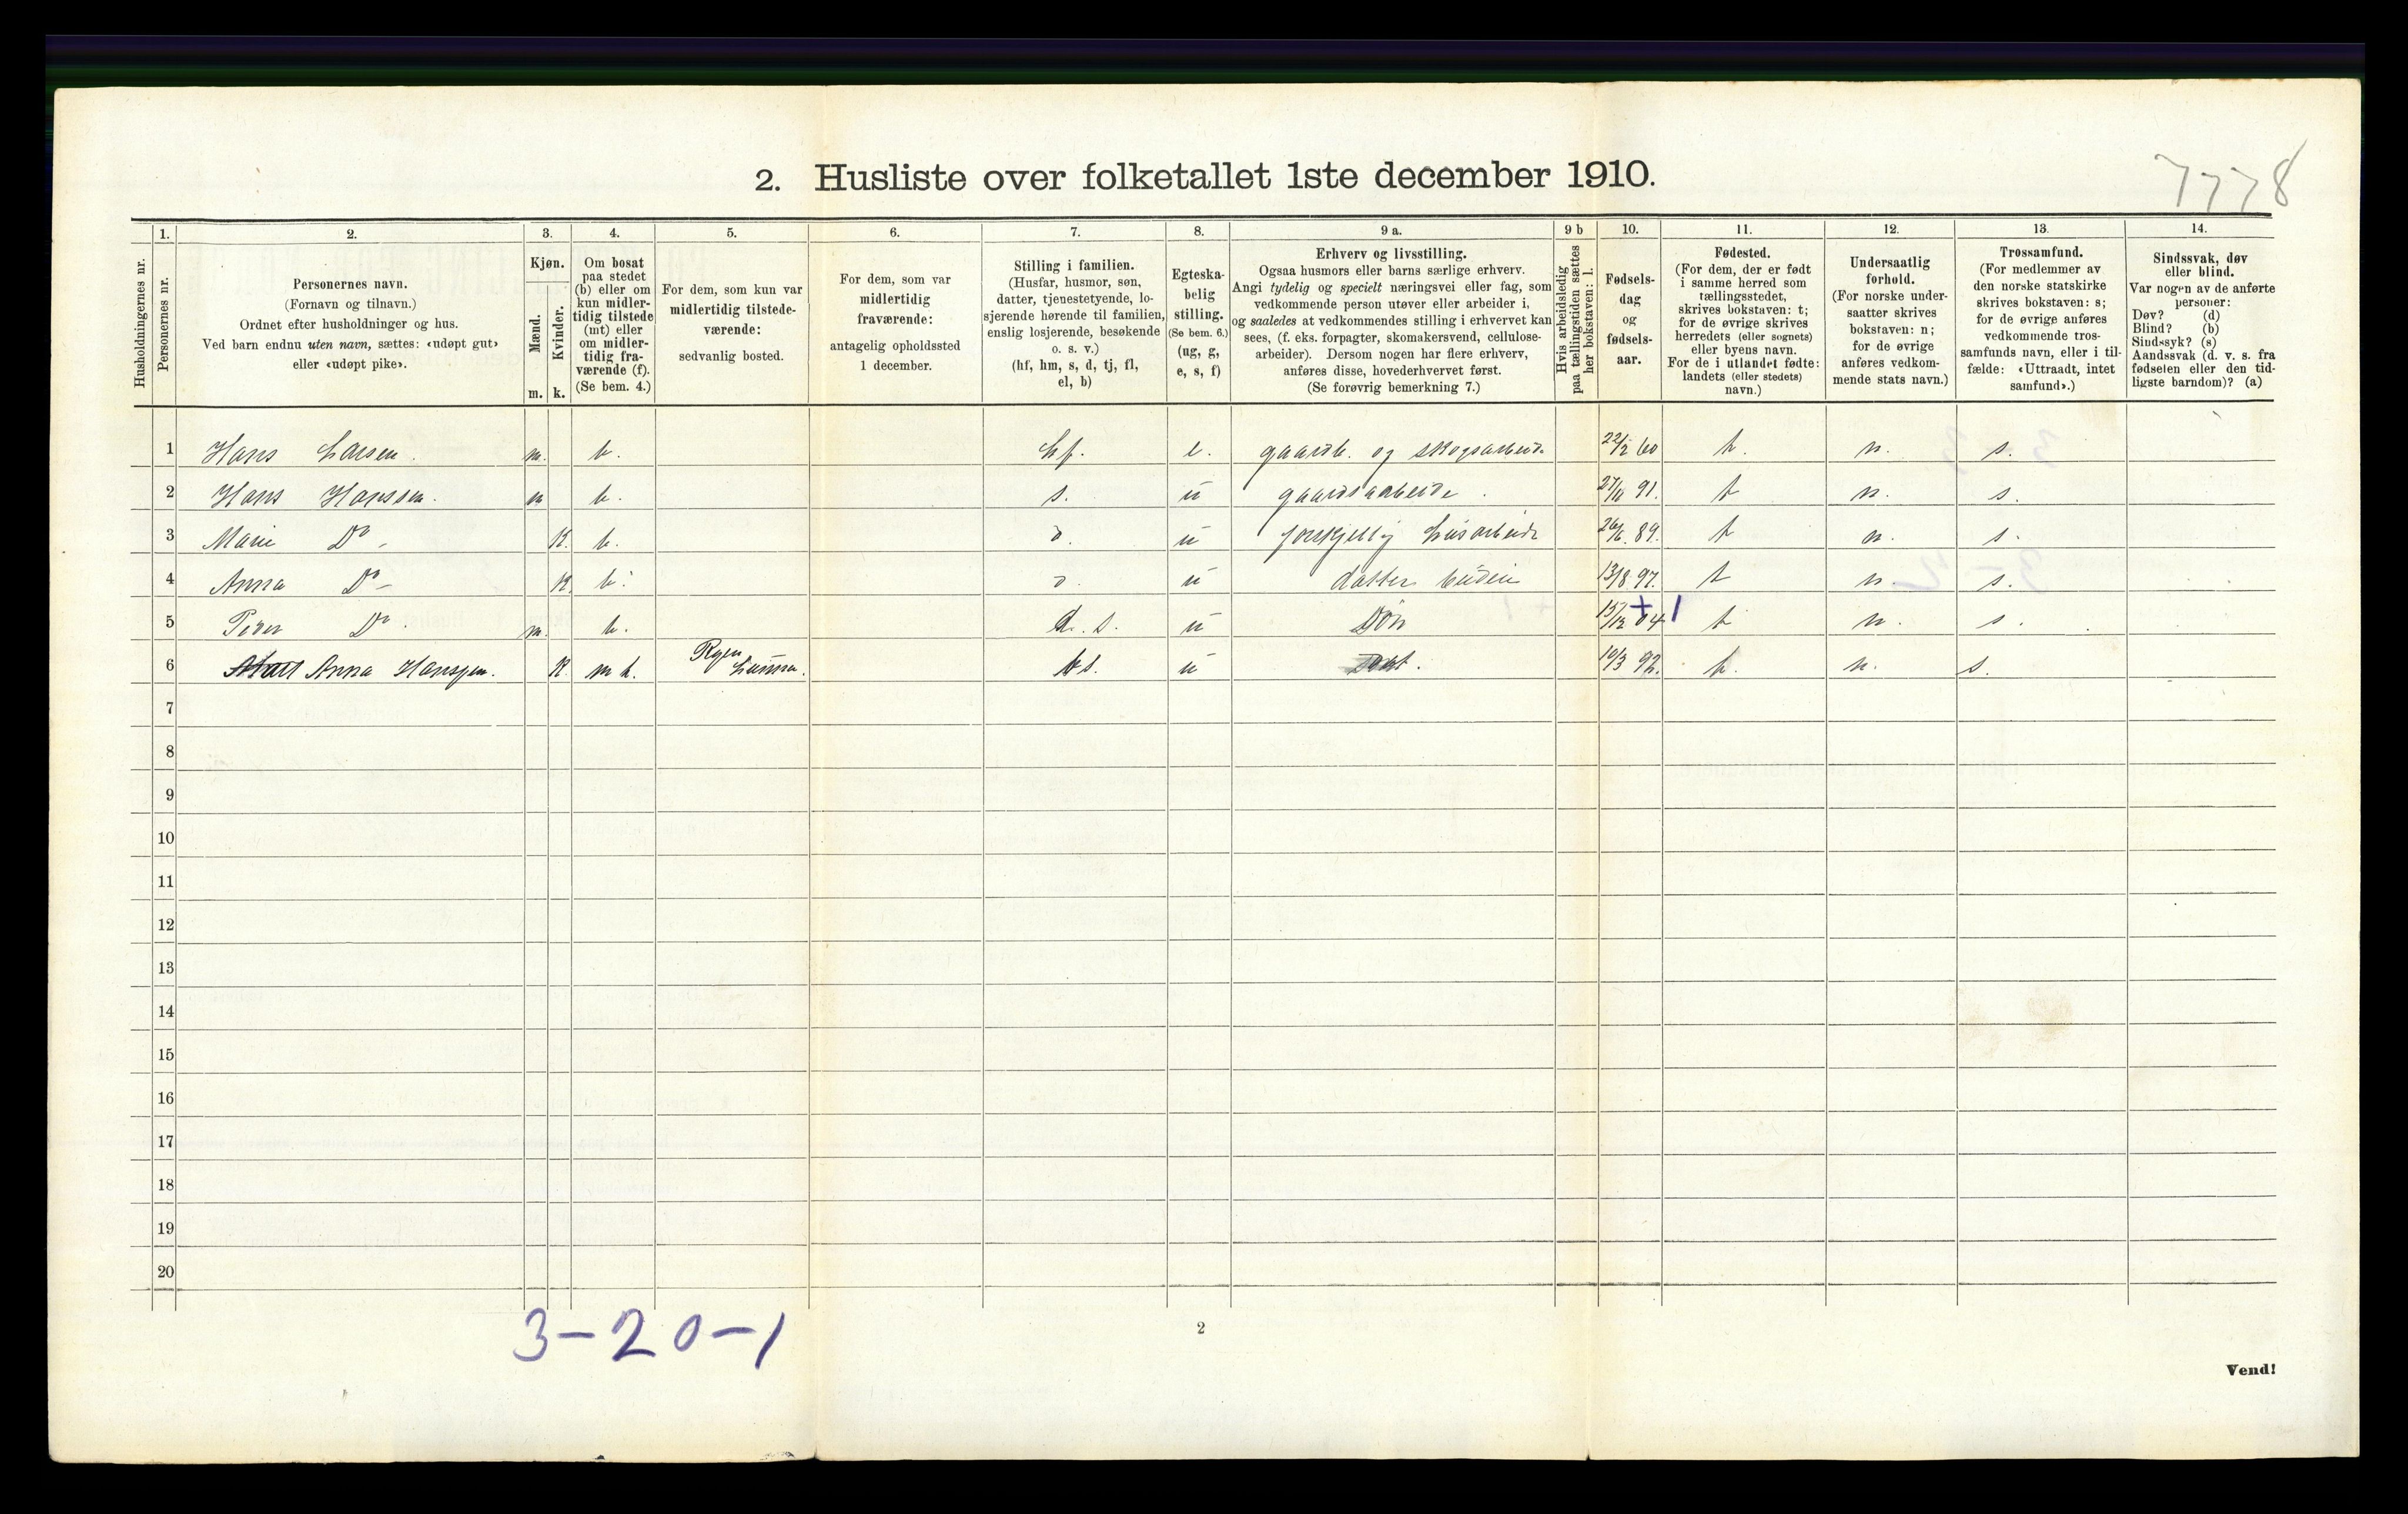 7778
2. Husliste over folketallet 1ste december 1910.
Husholdningernes nr.
1.
Personernes nr.
2.
Personernes navn.
(Fornavn og tilnavn.)
Ordnet efter husholdninger og hus.
Ved barn endnu uten navn, sættes: «udøpt gut»
eller «udøpt pike».
3.
Kjøn.
Mænd.
Kvinder.
m. k.
4.
Om bosat
paa stedet
(b) eller om
kun midler-
tidig tilstede
(mt) eller
om midler-
tidig fra-
værende (f).
(Se bem. 4.)
5.
For dem, som kun var
midlertidig tilstede-
værende:
sedvanlig bosted.
6.
For dem, som var
midlertidig
fraværende:
antagelig opholdssted
1 december.
7.
Stilling i familien.
(Husfar, husmor, søn,
datter, tjenestetyende, lo-
sjerende hørende til familien,
enslig losjerende, besøkende
o. s. v.)
(hf, hm, s, d, tj, fl,
el, b)
8.
Egteska-
belig
stilling.
(Se bem. 6.)
(ug, g,
e, s, f)
9 a.
Erhverv og livsstilling.
Ogsaa husmors eller barns særlige erhverv.
Angi tydelig og specielt næringsvei eller fag, som
vedkommende person utøver eller arbeider i,
og saaledes at vedkommendes stilling i erhvervet kan
sees, (f. eks. forpagter, skomakersvend, cellulose-
arbeider). Dersom nogen har flere erhverv,
anføres disse, hovederhvervet først.
(Se forøvrig bemerkning 7.)
9 b
Hvis arbeidsledig
paa tællingstiden sættes
her bokstaven: l.
10.
Fødsels-
dag
og
fødsels-
aar.
11.
Fødested.
(For dem, der er født
i samme herred som
tællingsstedet,
skrives bokstaven: t;
for de øvrige skrives
herredets (eller sognets)
eller byens navn.
For de i utlandet fødte:
landets (eller stedets)
navn.)
12.
Undersaatlig
forhold.
(For norske under-
saatter skrives
bokstaven: n;
for de øvrige
anføres vedkom-
mende stats navn.)
13.
Trossamfund.
(For medlemmer av
den norske statskirke
skrives bokstaven: s;
for de øvrige anføres
vedkommende tros-
samfunds navn, eller i til-
fælde: «Uttraadt, intet
samfund».)
14.
Sindssvak, døv
eller blind.
Var nogen av de anførte
personer:
Døv? (d)
Blind? (b)
Sindssyk? (s)
Aandssvak (d. v. s. fra
fødselen eller den tid-
ligste barndom)? (a)
1 Hans Larsen. m. b. hf. e. gaardb. og skogsarbeid. 22/2 60 t. n. s.
2 Hans Hanssen. m b. s. u gaardsarbeide. 91. t n. s.
3 Marie Do K. b. d. u forskjellig husarbeide 26/6. 89. t n. s.
4 Anna Do K. b. d. u datter 13/8 97. t n. s.
5 Peder Do m. b. s. u Søn 15/12 04 + 1 t n. s.
6 Anna Hanssen. K. m t. b u 10/3 92. t. n. s.
7
8
9
10
11
12
13
14
15
16
17
18
19
20
3-20-1
2
Vend!